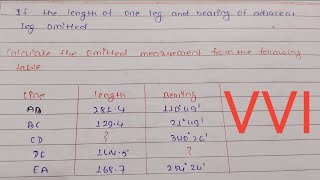 If the length of one leg and bearing of adjacent
leg omitted
Calculate the omitted measurement form the following
table
Line length Bearing
AB 281.4 110°49'
BC 129.4 21°49'
CD ? 340°26'
DE 144.5 ?
EA 168.7 254°24'
VVI